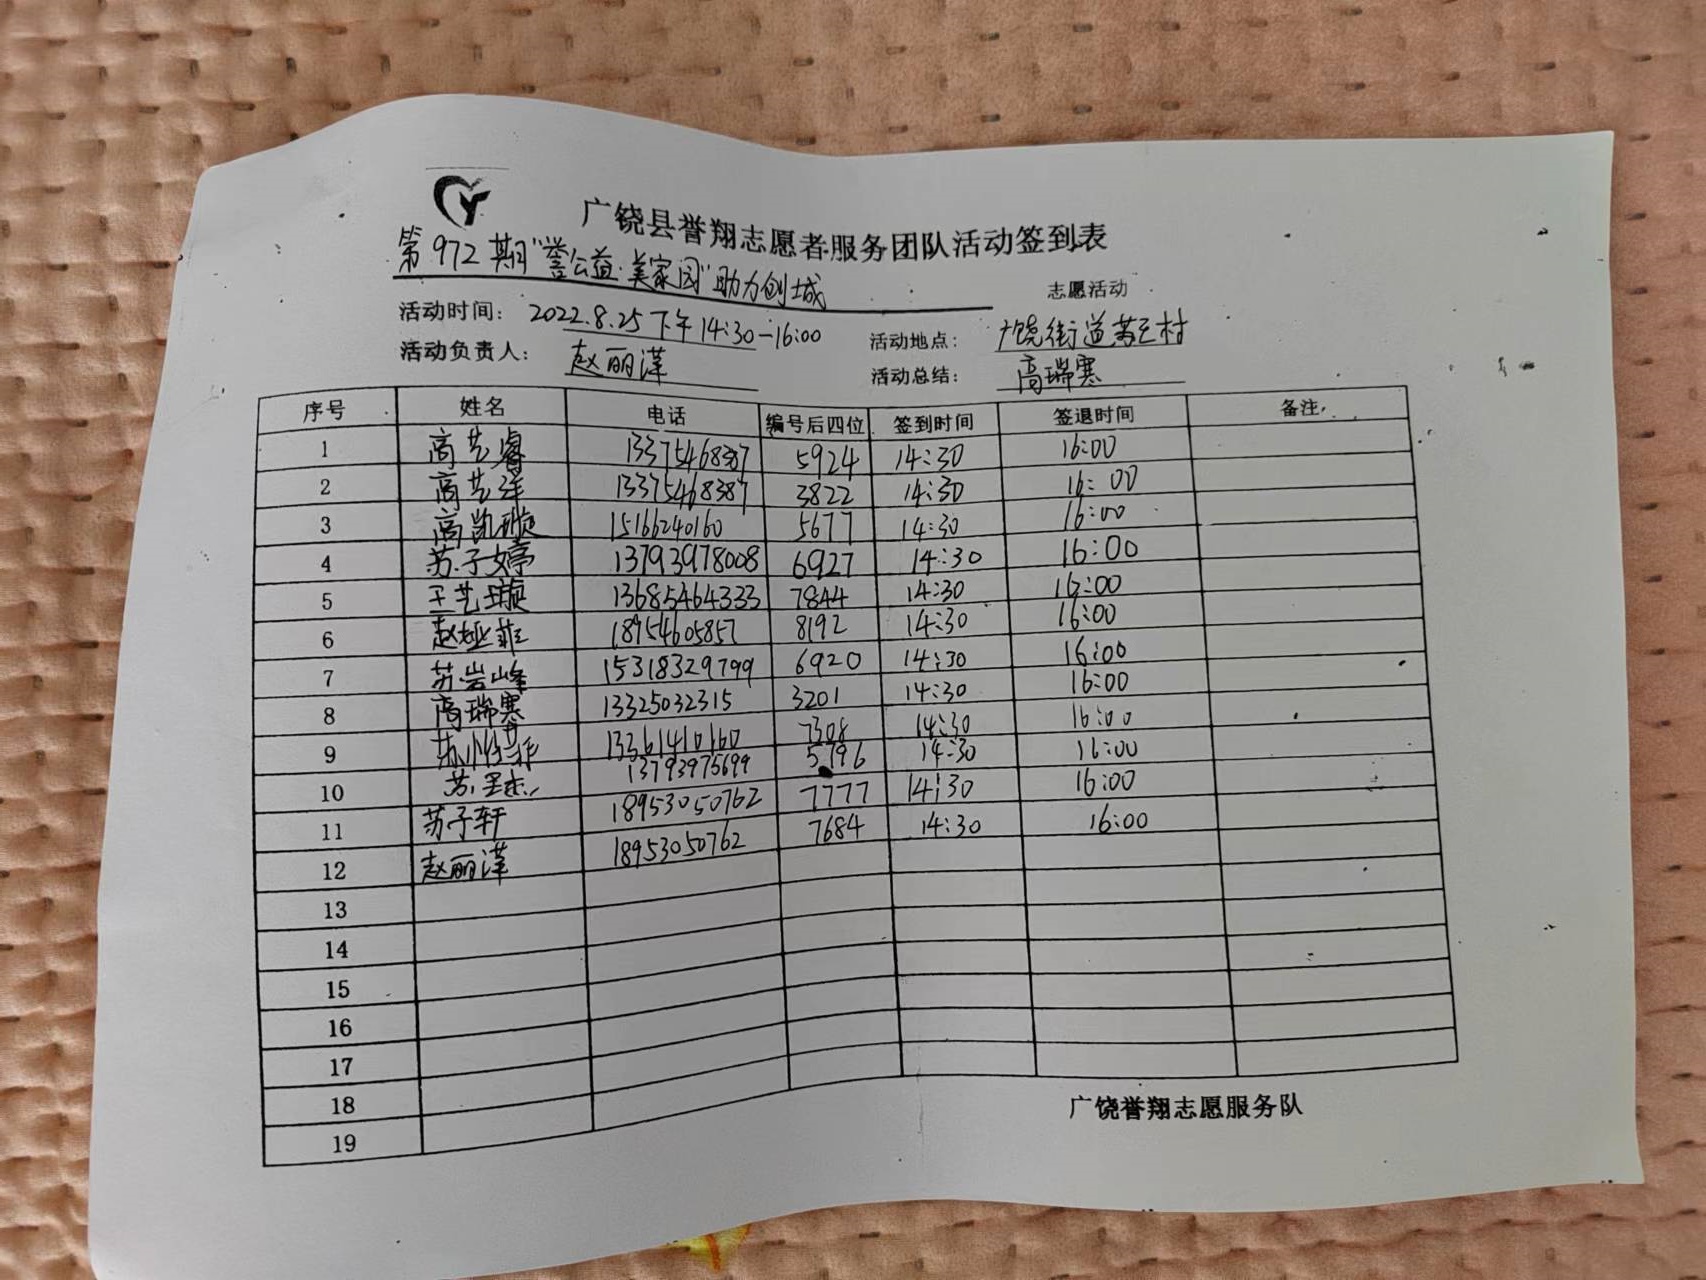 广饶县誉翔志愿者服务团队活动签到表
第972期"誉公益·美家园"助力创城 志愿活动
活动时间： 2022.8.25 下午 14:30-16:00 活动地点： 广饶街道苏三村
活动负责人： 赵丽萍 活动总结： 高瑞寒
序号 姓名 电话 编号后四位 签到时间 签退时间 备注
1 高艺睿 13375468387 5924 14:30 16:00
2 高艺洋 13375468387 3822 14:30 16:00
3 高凯璇 15166240160 5677 14:30 16:00
4 苏子婷 13793978008 6927 14:30 16:00
5 王艺璇 13685464333 7844 14:30 16:00
6 赵娅菲 18954605857 8192 14:30 16:00
7 苏岩峰 15318329799 6920 14:30 16:00
8 高瑞寒 13325032315 3201 14:30 16:00
9 苏 13361410160 7308 14:30 16:00
10 苏 13793975699 5796 14:30 16:00
11 苏子轩 18953050762 7777 14:30 16:00
12 赵丽萍 18953050762 7684 14:30 16:00
13
14
15
16
17
18
19
广饶誉翔志愿服务队